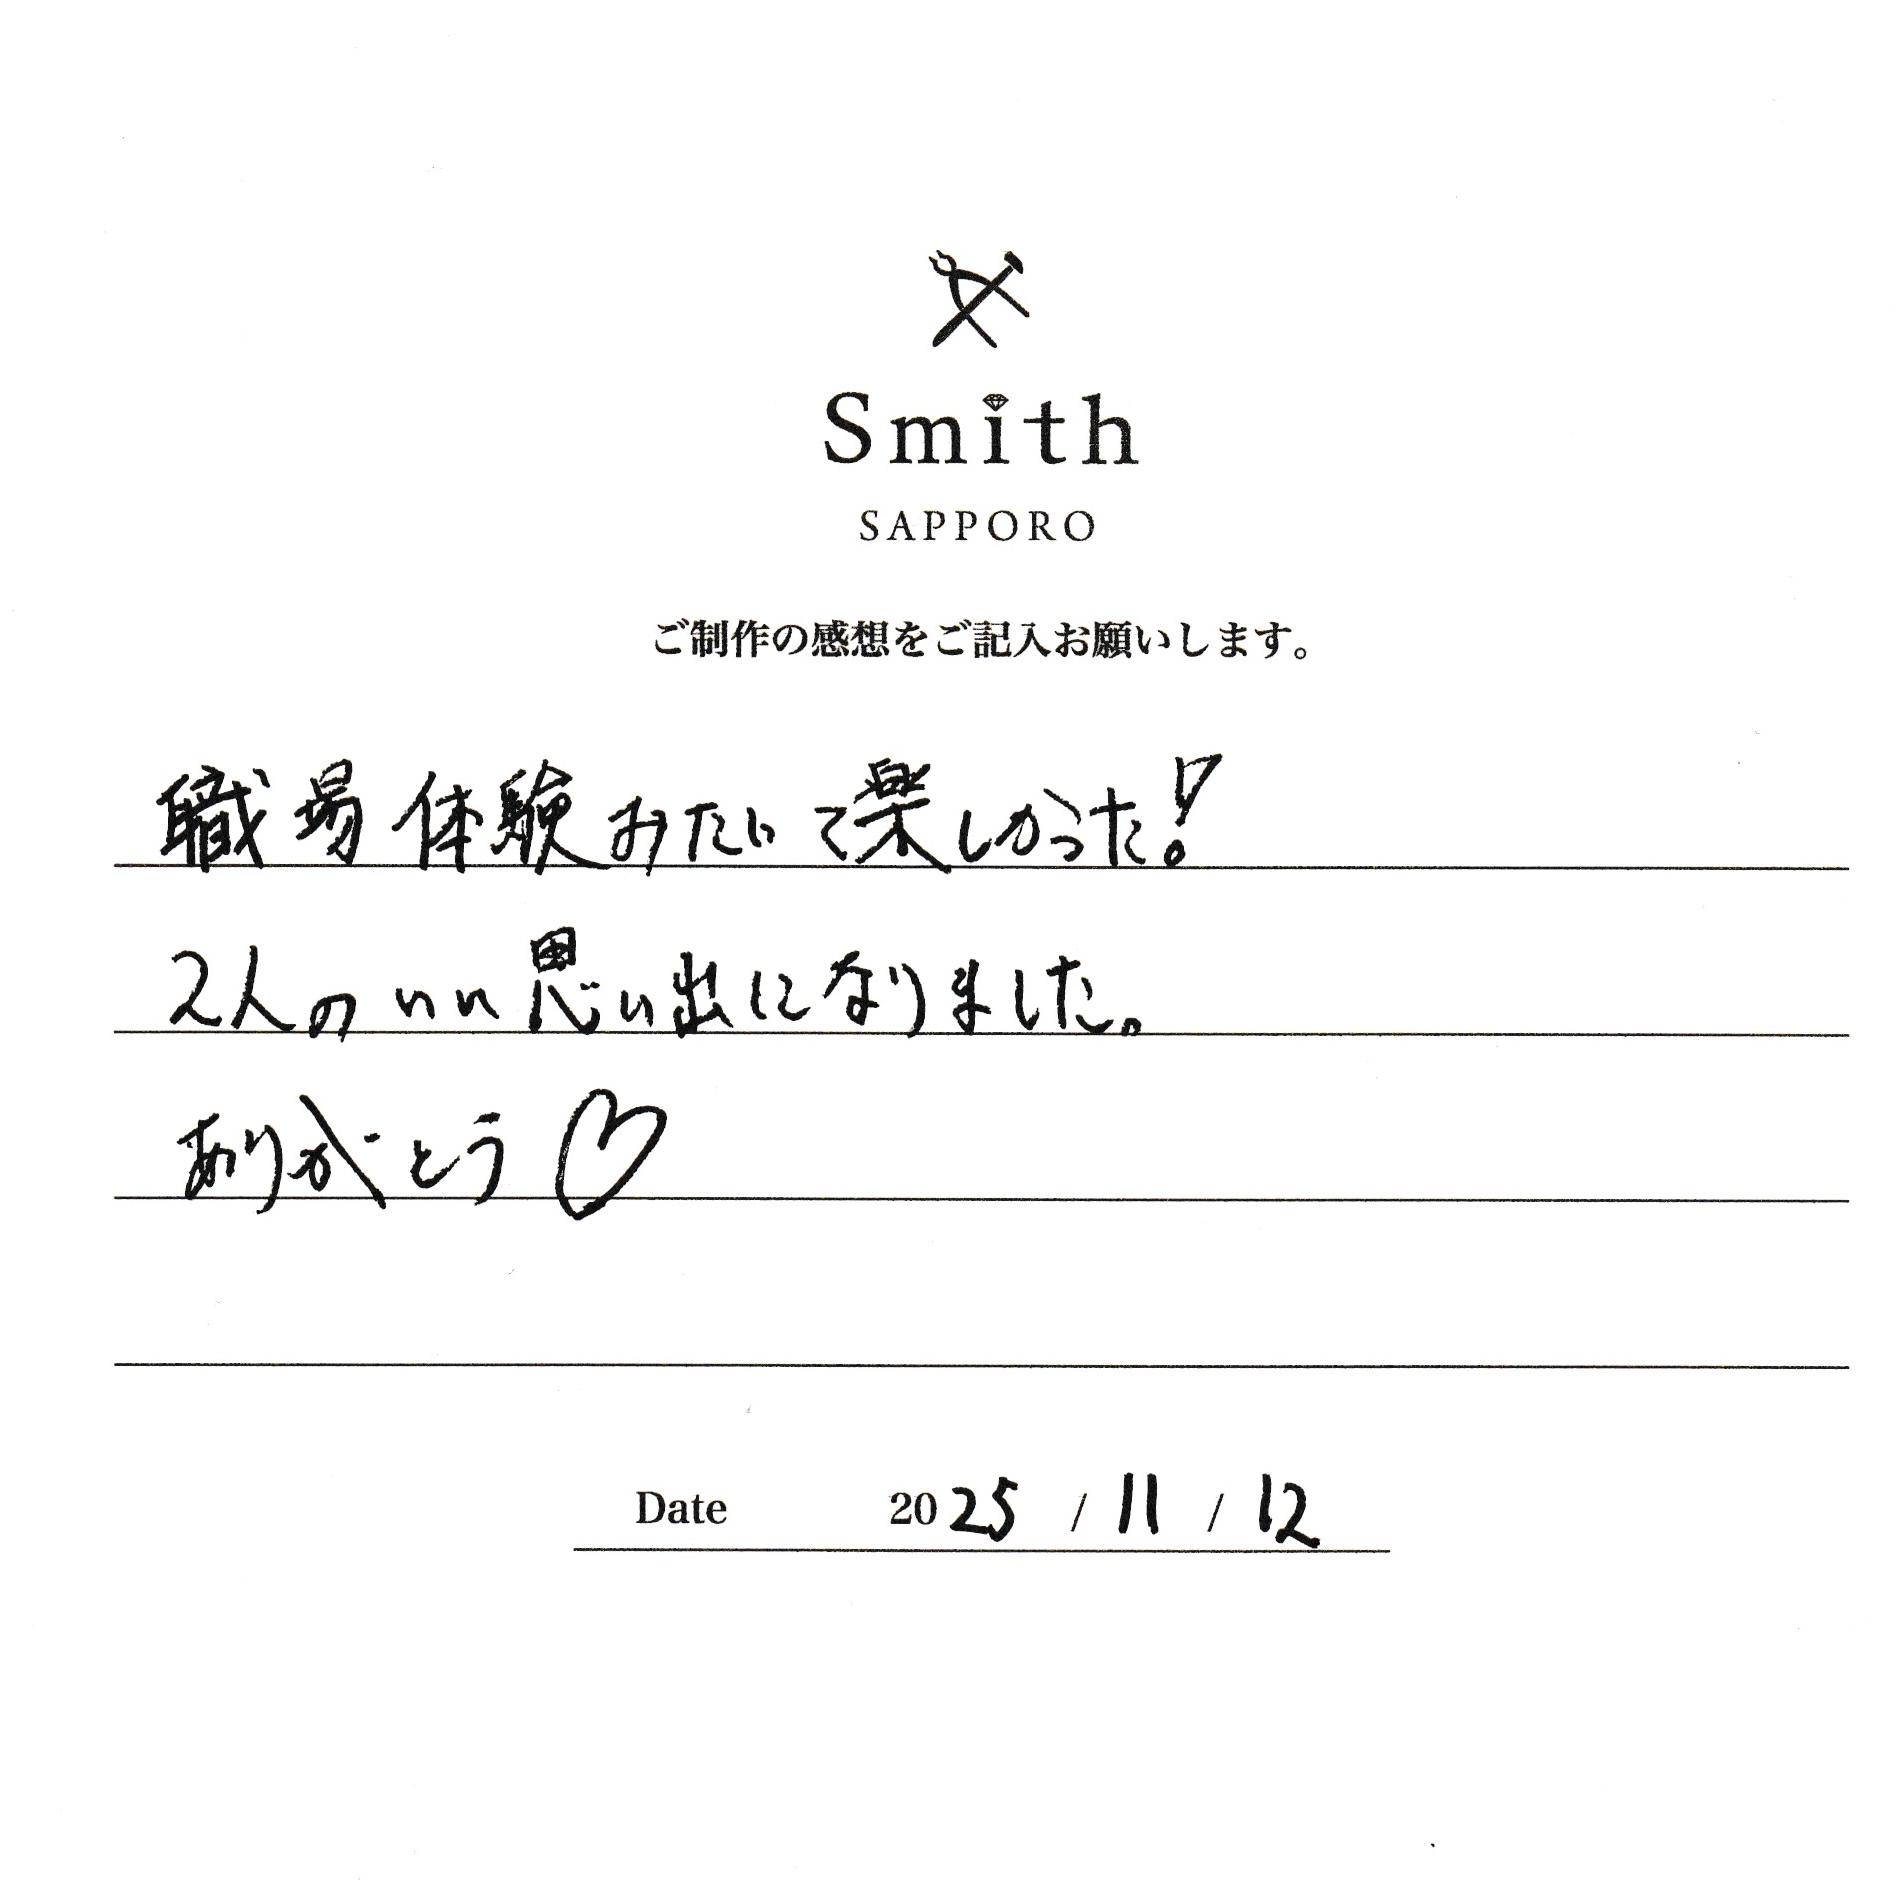 Smith
SAPPORO
ご制作の感想をご記入お願いします。
職場体験みたいで楽しかった!
2人のいい思い出になりました。
ありがとう♡
Date 2025 / 11 / 12